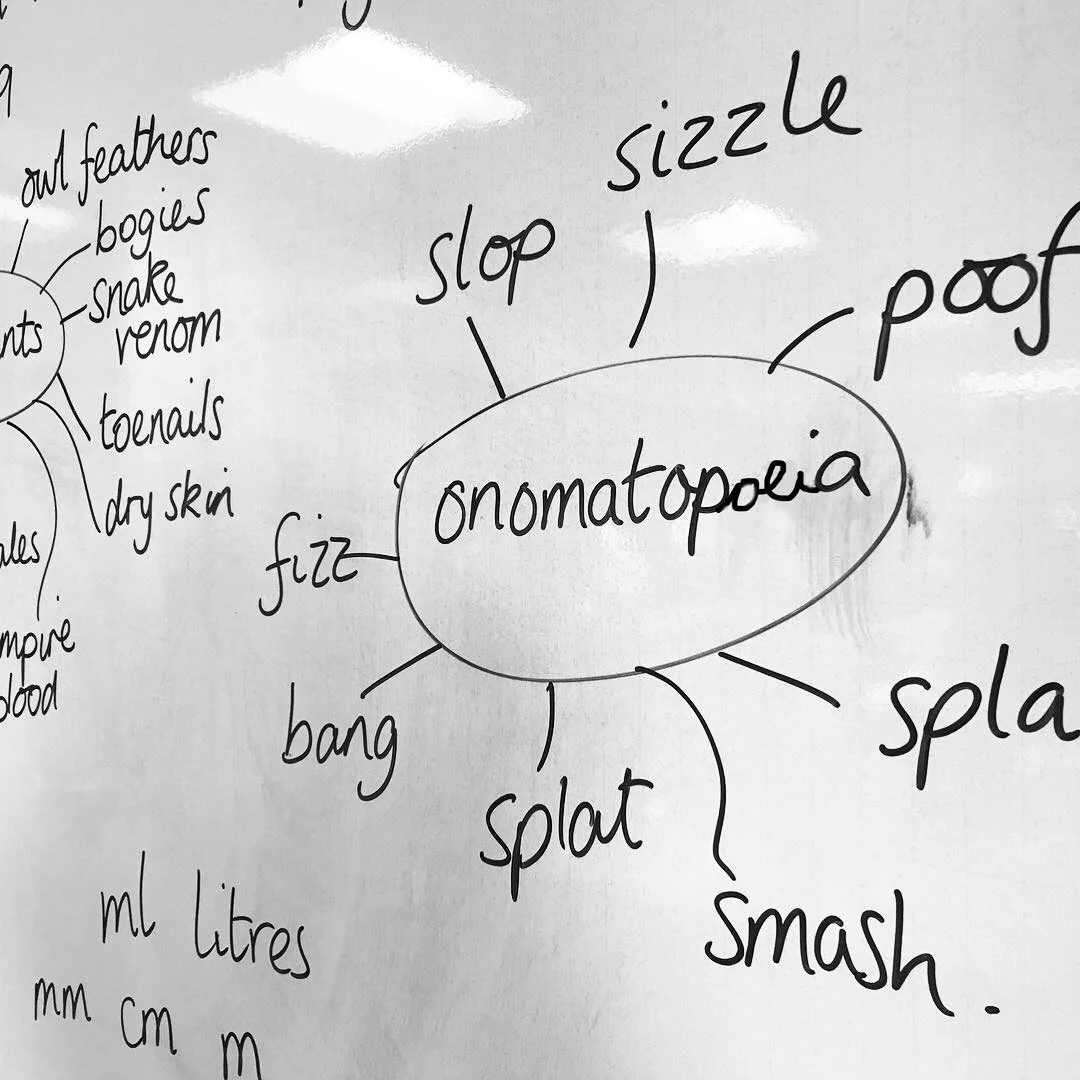 owl feathers
bogies
snake
venom
toenails
dry skin
sizzle
slop
poof
onomatopoeia
fizz
bang
splat
smash.
ml litres
mm cm m